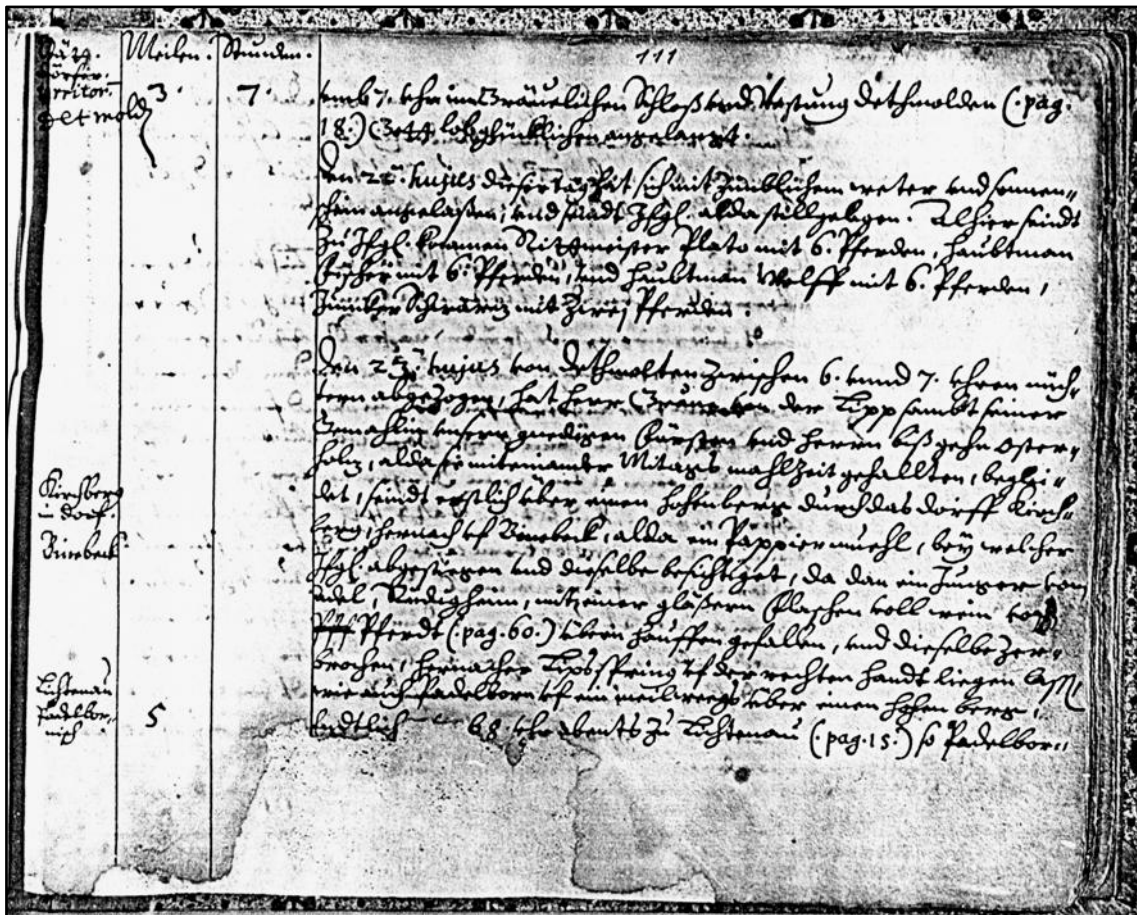 111
Meilen. Stunden.
Detmold
3.
7.
umb 7. uhr im Gräuelichen Schloß und Vestung Dethmolden (.pag.
18.) Gott lob glücklichen angelangt.
Den 22. hujus dieser tag hat sich mit zimblichem weter und sonnen„
schein angelaßen, und seindt Ihfgl. alda stillgelegen. Alhier seindt
zu Ihfgl. kommen Rittmeister Plato mit 6. Pferden, haubtman
mit 6. Pferden, und haubtman Wolff mit 6. Pferden,
Juncker Schwartz mit Zwey Pferden.
Den 23. hujus von Dethmolten zwischen 6. unnd 7. uhren nüch„
tern abgezogen, hat herr Graue von der Lipp sambt seiner
Gemahlin unsern gnedigen Fürsten und herrn biß gehn Oster„
holtz, alda sie miteinander Mitags mahlzeit gehallten, beglei„
det, seindt erstlich über einen hohen berg durch das dorff Kirch„
berg, hernach uf Binebeck, alda ein Pappiermuehl, bey welcher
Ihfgl. abgestigen und dieselbe besichtiget, da dan ein Junger von
adel, mit einer gläßern flaschen voll wein vom
Pferdt (.pag. 60.) übern hauffen gefallen, und dieselbe zer„
brochen, hernacher Lipsspring uf der rechten handt liegen laßen
wie auch Padelborn uf ein meil wegs über einen hohen berg,
Endtlich 8. uhr abents zu Lichtenau (.pag. 15.) so Padelbor„
Kirchberg
in dorf.
Binebeck
Lichtenau
Padelbor„
nisch
5